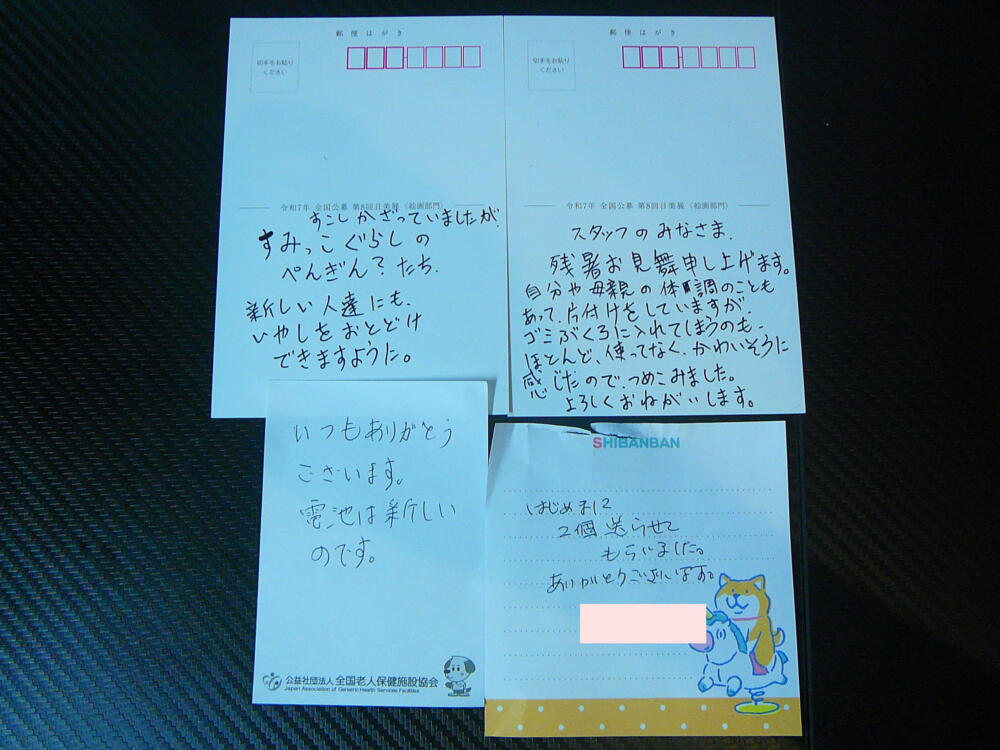 郵便はがき
切手をお貼り
ください
令和7年 全国公募 第8回日美展〈絵画部門〉
すこしかざっていましたが、
すみっこぐらしの
ぺんぎん?たち、
新しい人達にも、
いやしをおとどけ
できますように。
郵便はがき
切手をお貼り
ください
令和7年 全国公募 第8回日美展〈絵画部門〉
スタッフのみなさま、
残暑お見舞申し上げます。
自分や母親の体調のことも
あって、片付けをしていますが、
ゴミぶくろに入れてしまうのも、
ほとんど、使ってなく、かわいそうに
感じたので、つめこみました。
よろしくおねがいします。
いつもありがとう
ございます。
電池は新しい
のです。
公益社団法人 全国老人保健施設協会
Japan Association of Geriatric Health Services Facilities
SHIBANBAN
はじめに
2個送らせて
もらいました。
ありがとうございます。